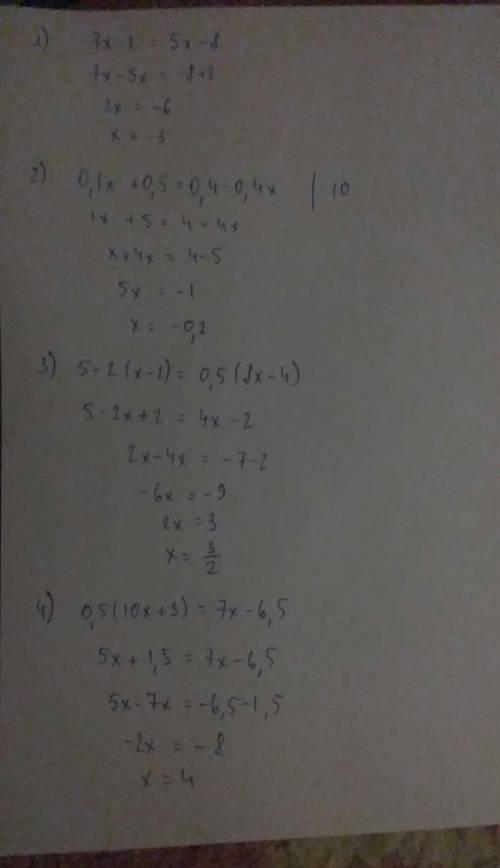 1) 7x-2 = 5x-8
7x-5x = -8+2
2x = -6
x = -3
2) 0,1x +0,5 = 0,4-0,4x | 10
1x +5 = 4 - 4x
x+4x = 4-5
5x = -1
x = -0,2
3) 5-2(x-1) = 0,5(8x-4)
5-2x+2 = 4x-2
-2x-4x = -7-2
-6x = -9
2x = 3
x = 3/2
4) 0,5(10x+3) = 7x-6,5
5x+1,5 = 7x-6,5
5x-7x = -6,5-1,5
-2x = -8
x = 4